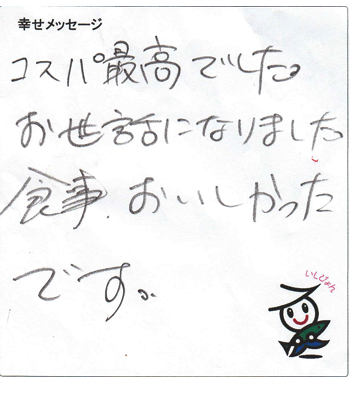 幸せメッセージ
コスパ最高でした。
お世話になりました
食事、おいしかった
です。
いしぴょん